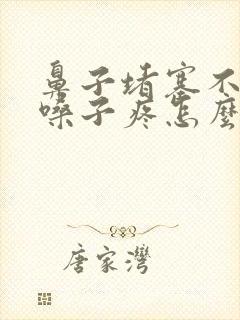 鼻子堵塞不
嗓子疼怎麼
唐家灣